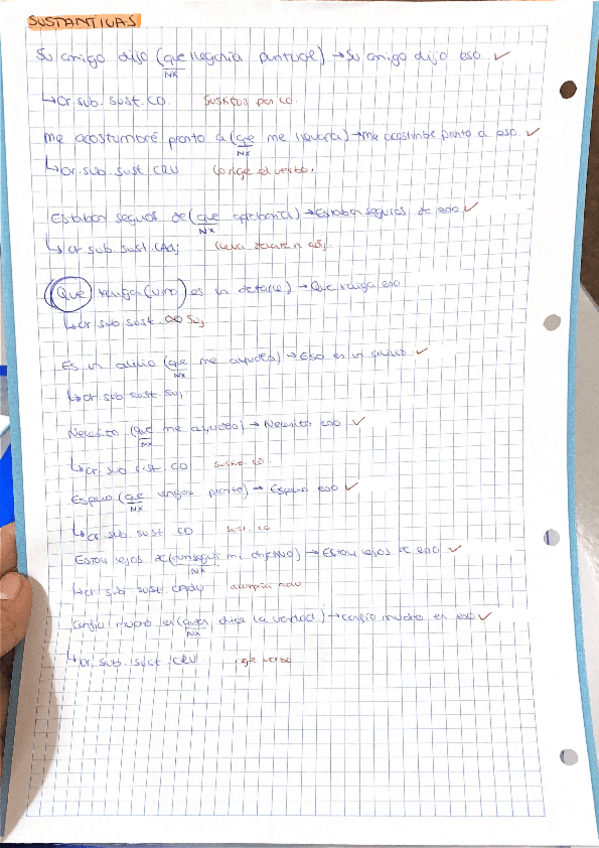 SUSTANTIVAS
Su amigo dijo (que llegaría puntual) → Su amigo dijo eso ✓
NX
↳ Or. sub. sust. CD. Sustituye por lo.
Me acostumbré pronto a (que me llevara) → Me acostumbré pronto a eso ✓
NX
↳ Or. sub. sust CRV Lo rige el verbo.
Estaban seguros de (que aprobaría) → Estaban seguros de eso ✓
NX
↳ Or sub sust. CAdj adj.
(Que venga es un detalle) → Que venga eso
↳ Or sub sust. Suj
Es un alivio (que me ayudes) → Eso es un alivio ✓
NX
↳ Or. sub sust. Suj
Necesito (que me ayudes) → Necesito eso ✓
NX
↳ Or. sub sust. CD sust. lo
Espero (que vengas pronto) → Espero eso ✓
NX
↳ Or. sub. sust CD sust. lo
Estoy lejos de (conseguir mi objetivo) → Estoy lejos de eso ✓
NX
↳ Or sub sust. CAdv adv
Confío mucho en (quien dice la verdad) → Confío mucho en eso ✓
NX
↳ Or. sub. sust CRV rige verbo